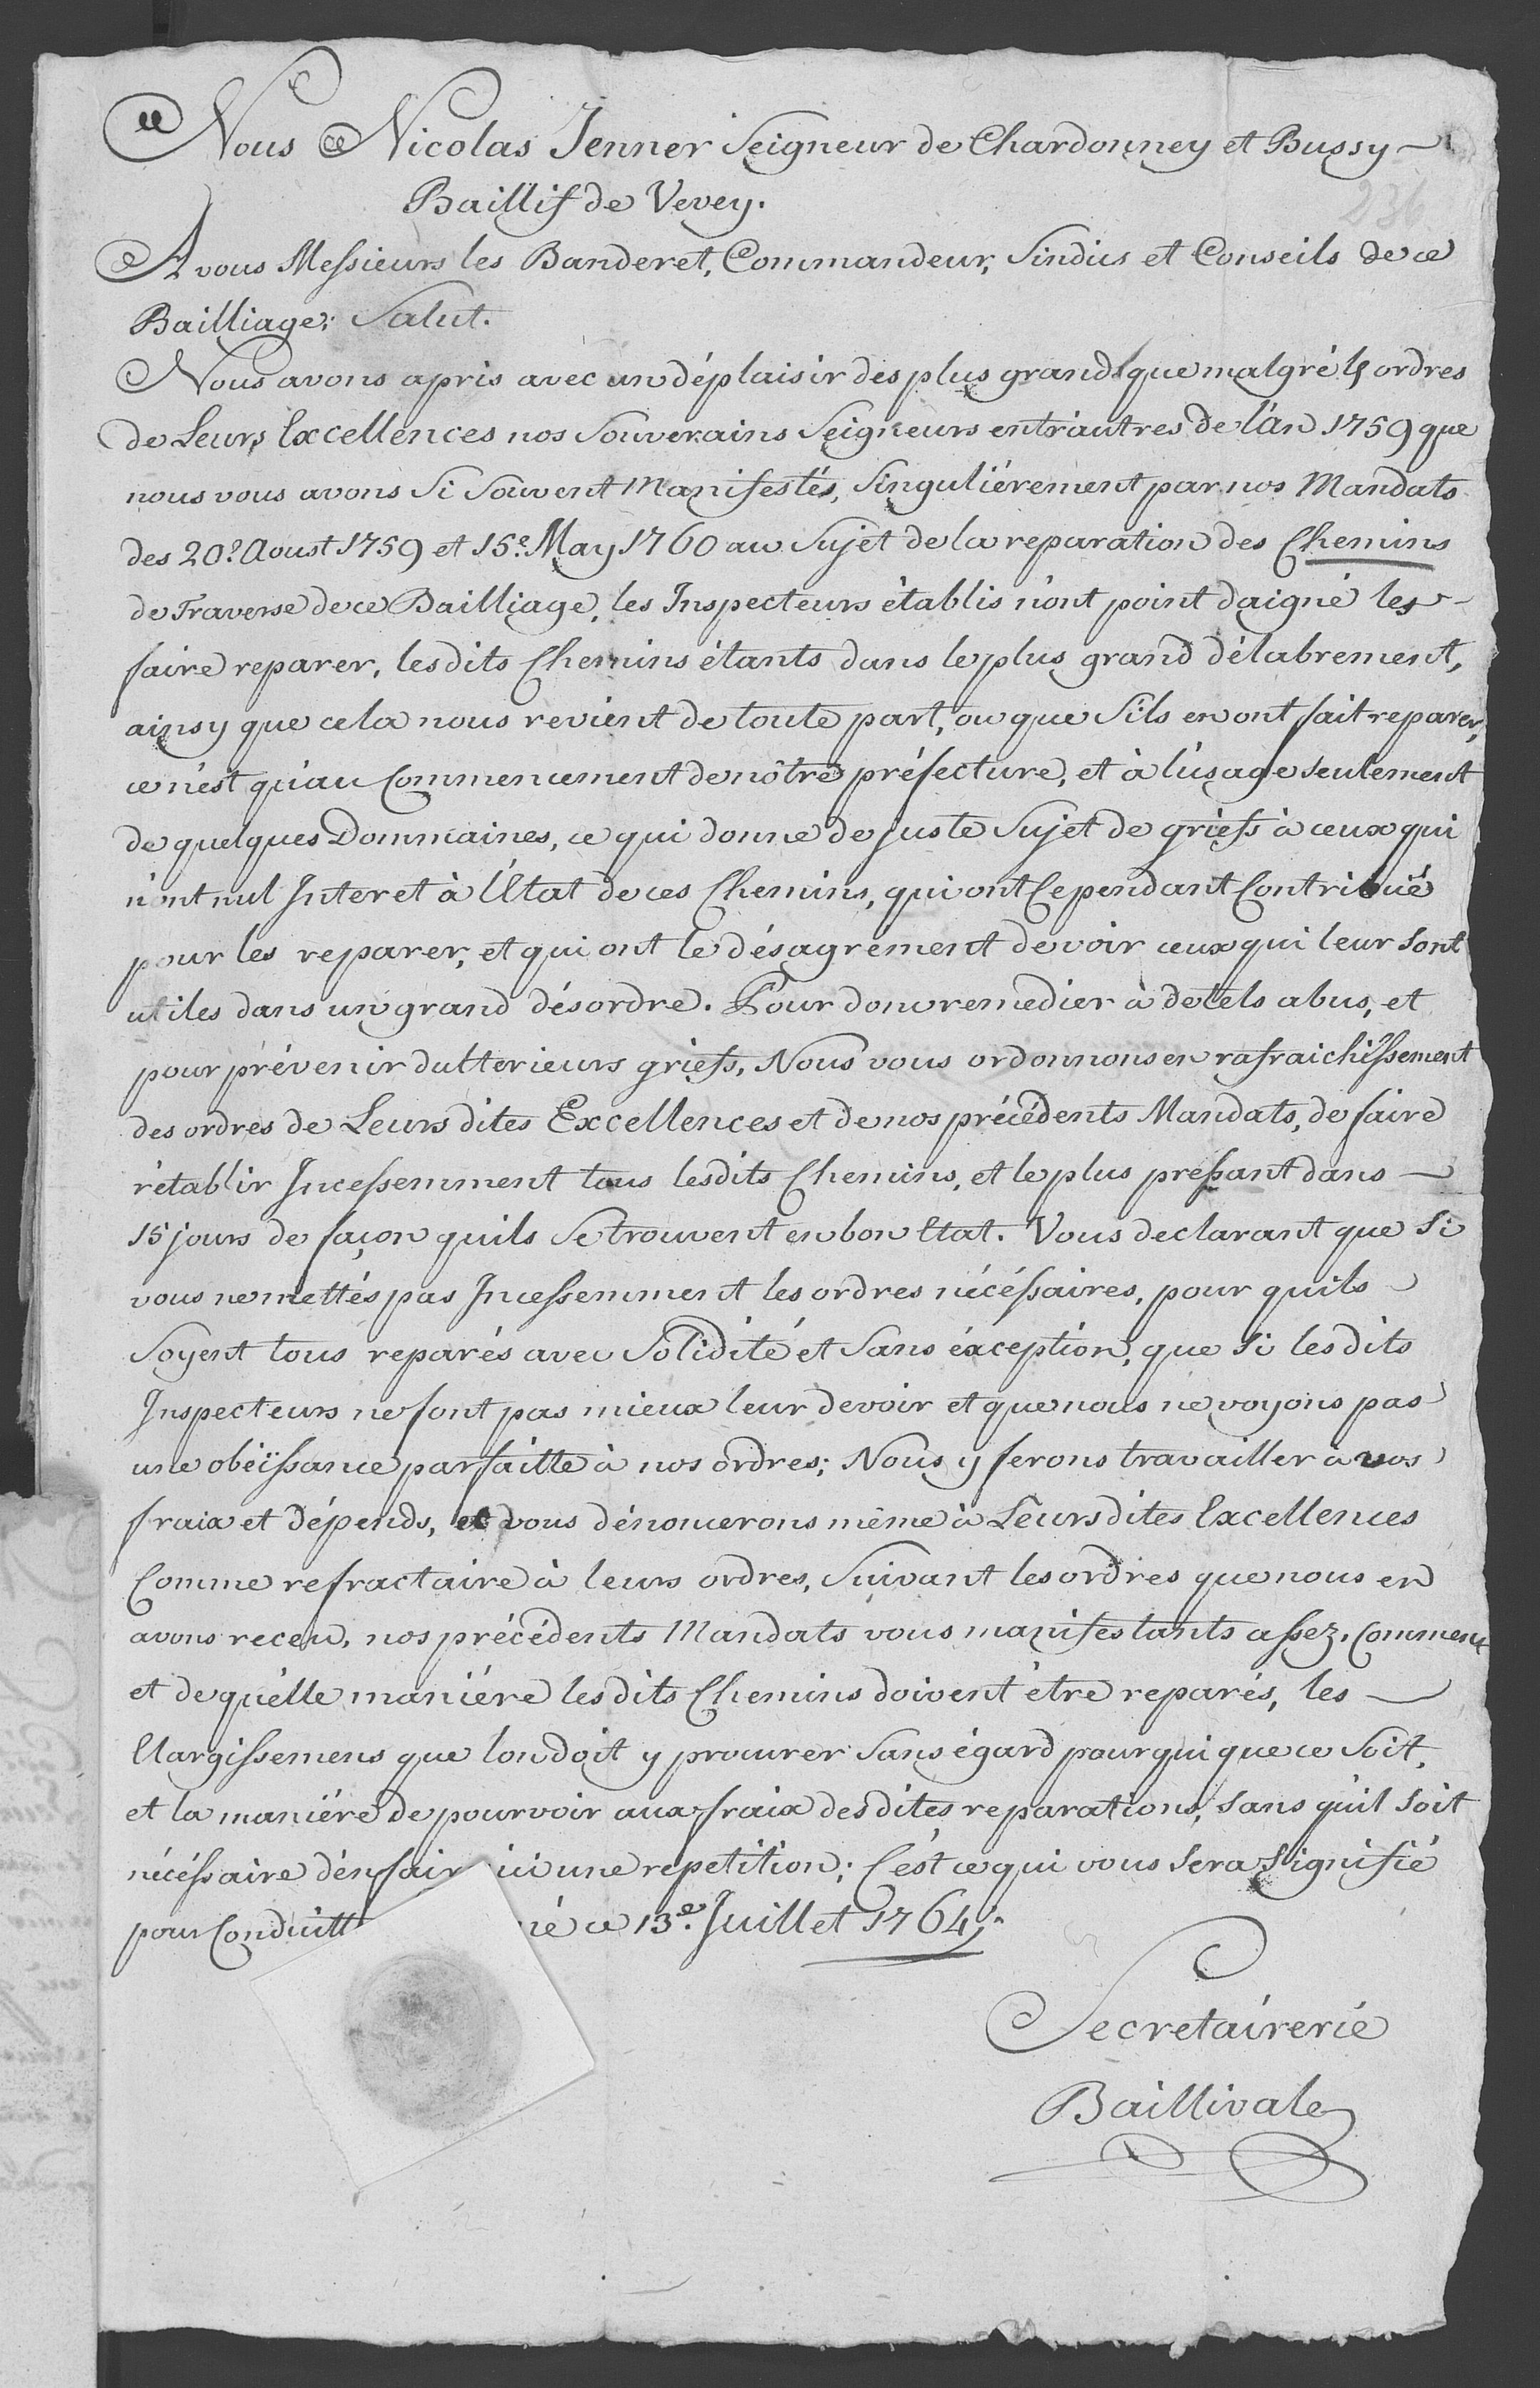 Nous Nicolas Jenner Seigneur de Chardonney et Bussy
Baillif de Vevey.
236
A vous Messieurs les Banderet, Commandeur, Sindics et Conseils de ce
Bailliage; Salut.
Nous avons apris avec un déplaisir des plus grands que malgré les ordres
de Leurs Excellences nos Souverains Seigneurs entr'autres de l'an 1759 que
nous vous avons Si Souvent Manifestés, Singuliérement par nos Mandats
des 20e. Aoust 1759 et 15e. May 1760 au Sujet de la reparation des Chemins
de Traverse de ce Bailliage, les Inspecteurs établis n'ont point daigné les
faire reparer, lesdits Chemins étants dans le plus grand délabrement,
ainsy que cela nous revient de toute part, ou que S'ils en ont fait reparer,
ce n'est qu'au Commencement de nôtre préfecture, et à l'usage seulement
de quelques Dommaines, ce qui donne de juste Sujet de griefs à ceux qui
n'ont nul Interet à l'Etat de ces Chemins, qui ont Cependant Contribué
pour les reparer, et qui ont le désagrément de voir ceux qui leur sont
utiles dans un grand désordre. Pour donc remedier à de tels abus, et
pour prévenir d'ulterieurs griefs, Nous vous ordonnons en rafraichissement
des ordres de Leurs dites Excellences et de nos précédents Mandats, de faire
rétablir Incessemment tous lesdits Chemins, et le plus pressant dans
15 jours de façon quils Se trouvent en bon Etat. Vous declarant que Si
vous ne mettés pas Incessemment les ordres nécéssaires, pour quils
Soyent tous reparés avec Solidité et Sans éxception, que Si lesdits
Inspecteurs ne font pas mieux leur devoir et que nous ne voyons pas
une obeïssance parfaitte à nos ordres; Nous y ferons travailler à vos
fraix et dépends, et vous dénoncerons même à Leurs dites Excellences
Comme refractaire à leurs ordres, Suivant les ordres que nous en
avons receu, nos précédents Mandats vous manifestants assez, Comment
et de quélle maniére lesdits Chemins doivent être reparés, les
Elargissemens que l'on doit y procurer Sans égard pour qui que ce Soit,
et la maniére de pourvoir aux fraix desdites reparations, sans qu'il soit
nécéssaire d'en fair ici une repetition; C'est ce qui vous sera Signifié
pour Conduitt né ce 13e. Juillet 1764.
Secretairerie
Baillivale